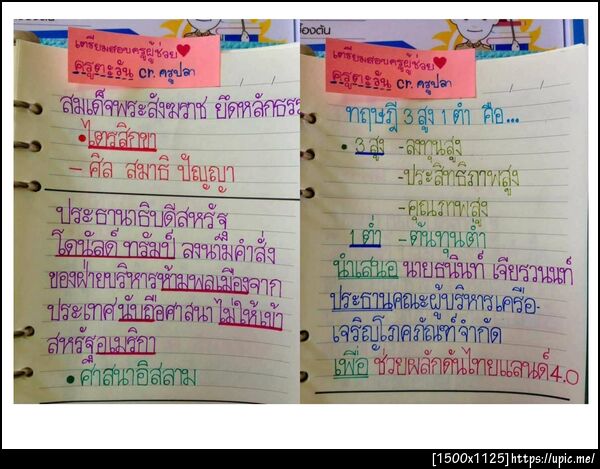 เตรียมสอบครูผู้ช่วย
ครูตะวัน cr. ครูปลา
สมเด็จพระสังฆราช ยึดหลักธรร
• ไตรสิกขา
- ศิล สมาธิ ปัญญา
ประธานาธิบดีสหรัฐ
โดนัลด์ ทรัมป์ ลงนามคำสั่ง
ของฝ่ายบริหารห้ามพลเมืองจาก
ประเทศนับถือศาสนาไม่ให้เข้า
สหรัฐอเมริกา
• ศาสนาอิสลาม
องต้น
เตรียมสอบครูผู้ช่วย
ครูตะวัน cr. ครูปลา
ทฤษฎี 3 สูง 1 ต่ำ คือ...
• 3 สูง - ลงทุนสูง
- ประสิทธิภาพสูง
- คุณภาพสูง
1 ต่ำ - ต้นทุนต่ำ
นำเสนอ นายธนินท์ เจียรวนนท์
ประธานคณะผู้บริหารเครือ
เจริญโภคภัณฑ์จำกัด
เพื่อ ช่วยผลักดันไทยแลนด์ 4.0
[1500x1125]https://upic.me/